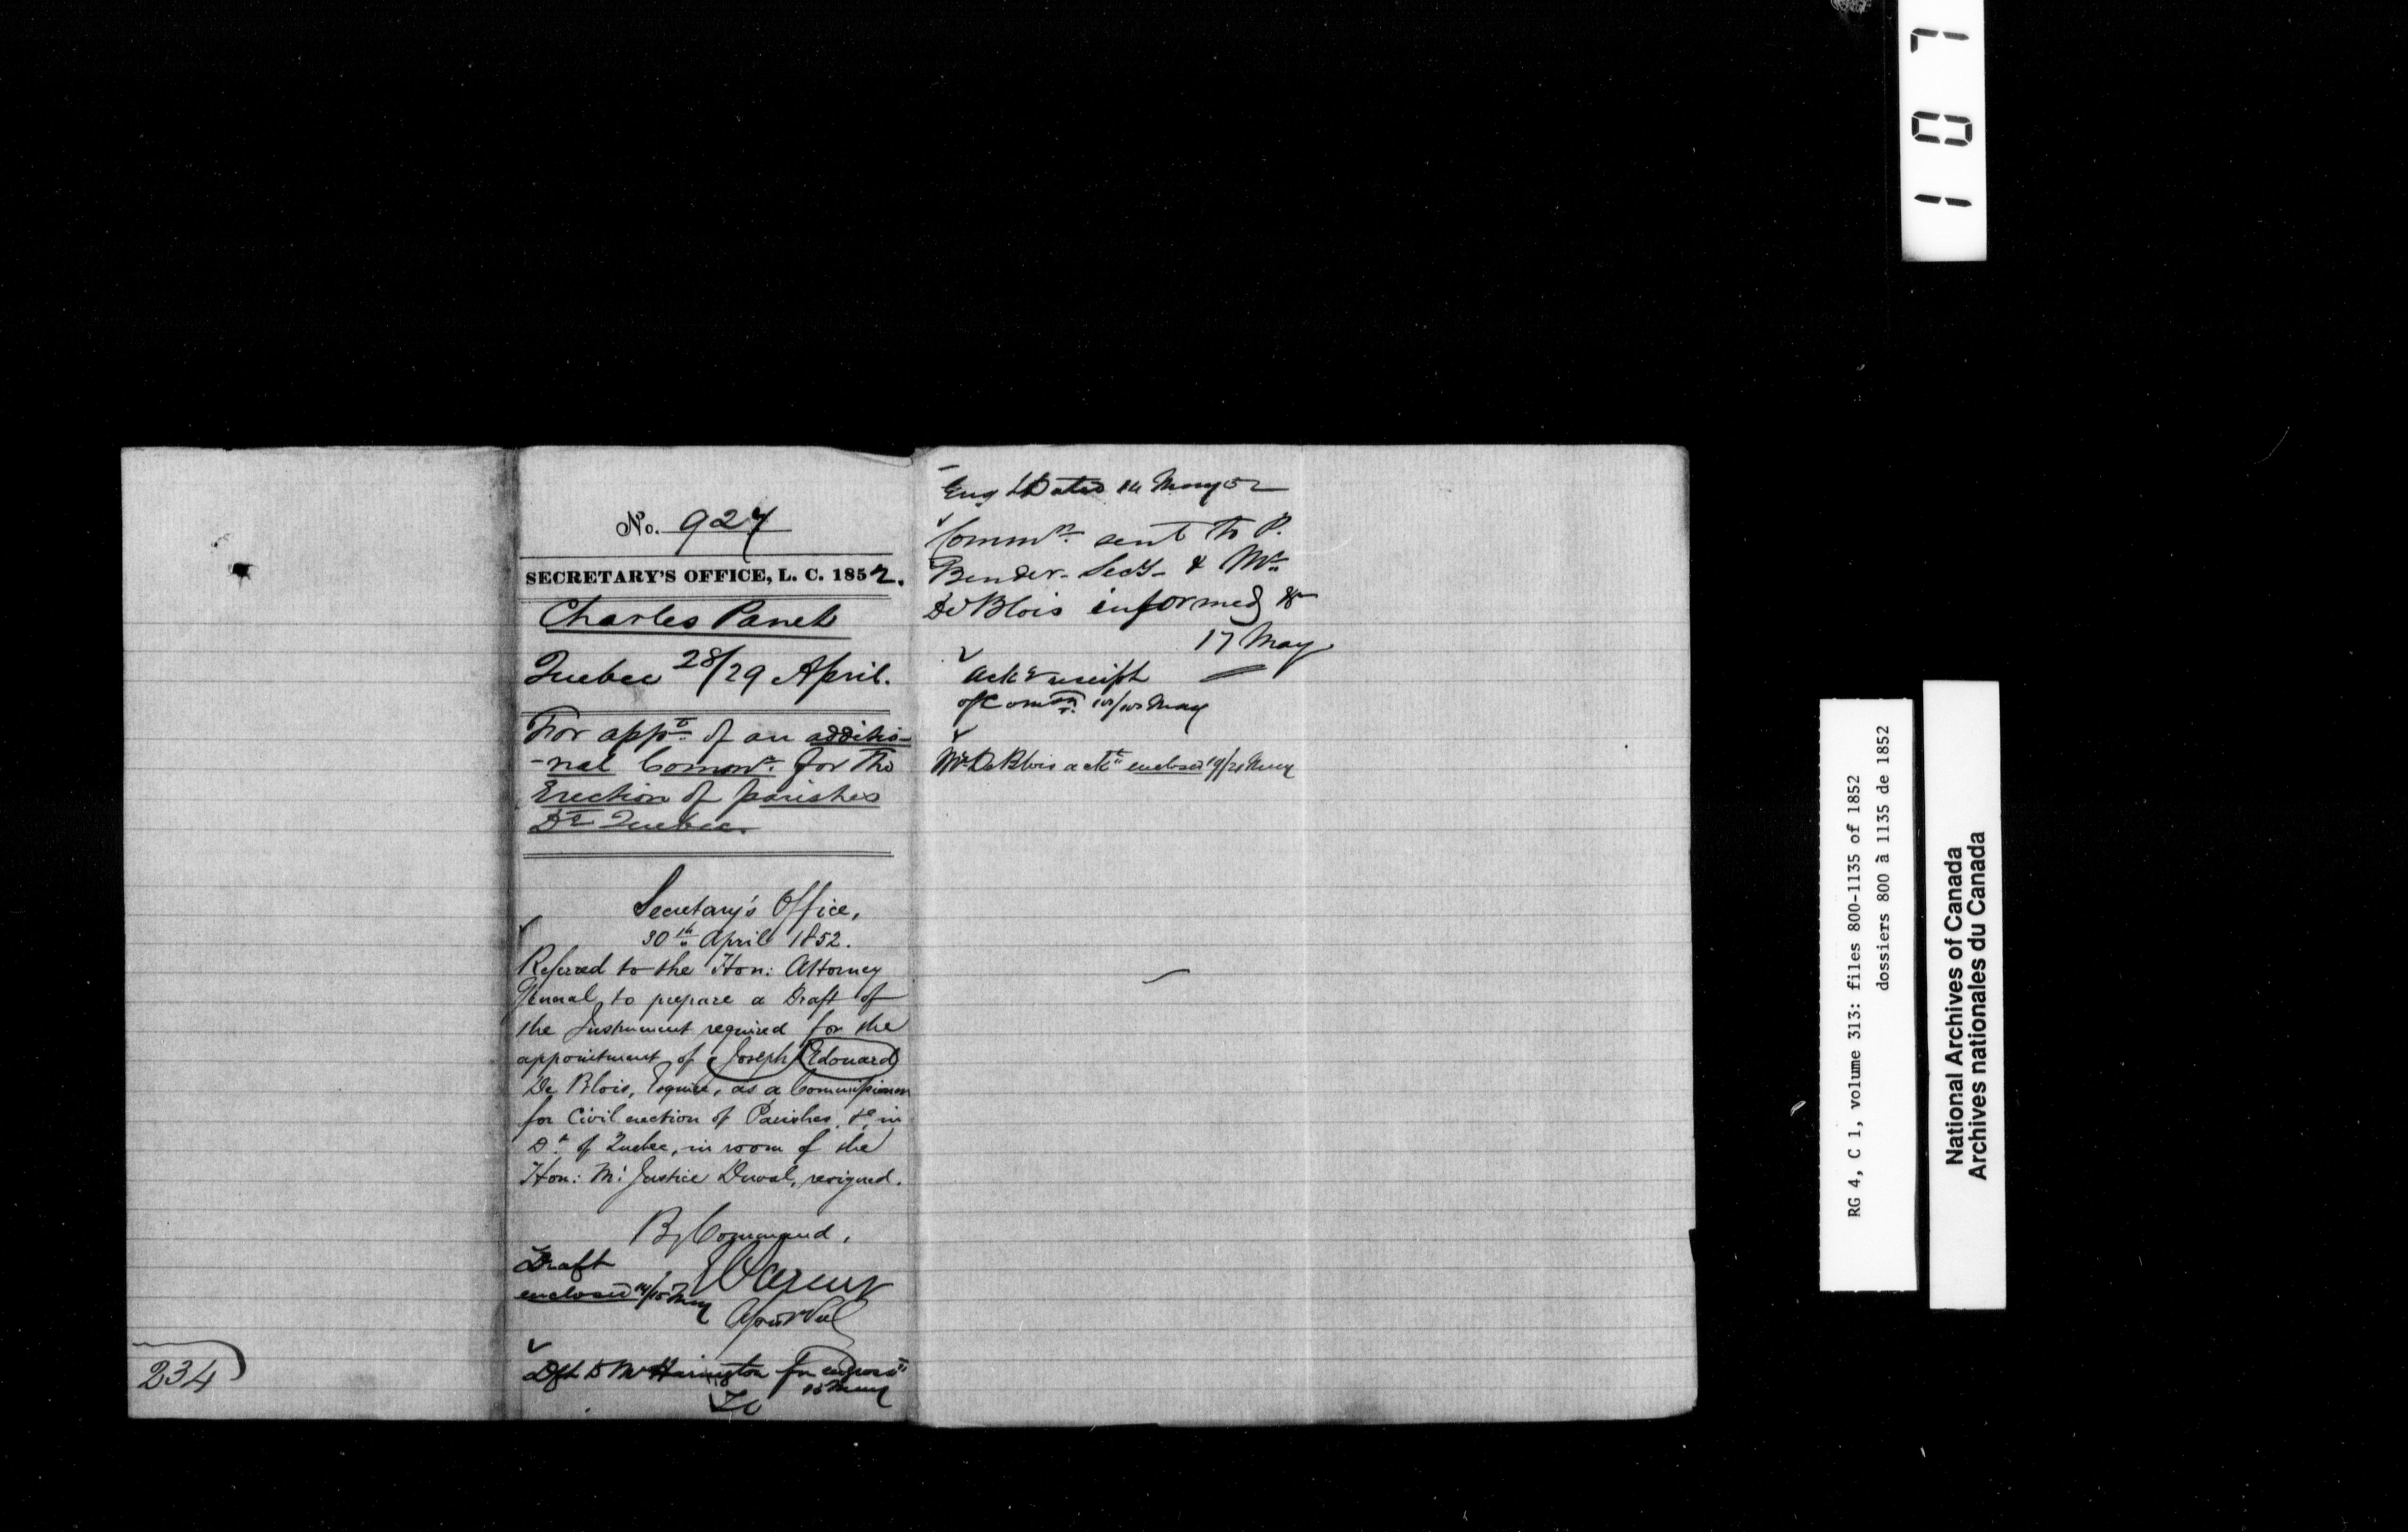 No. 927
SECRETARY'S OFFICE, L. C. 1852.
Charles Panet
Quebec 28/29 April.
For appt. of an additio-
-nal Commr. for the
Erection of parishes
Dt Quebec.
Secretary's Office,
30th April 1852.
Referred to the Hon: Attorney
General, to prepare a Draft of
the Instrument required for the
appointment of Joseph Edouard
De Blois, Esquire, as a Commissioner
for Civil erection of Parishes, &c, in
Dt. of Quebec, in room of the
Hon: Mr. Justice Duval, resigned.
By Command,
Draft
enclosed 14/15 May
Asst Secy
Dft to Mr Harington for engrosst
15 May
234
Eng Dated 14 May 52
Commn. sent to P.
Bender. Secy. & Mr.
De Blois informed
17 May
Ack receipt
of Commn. May
Mr De Blois ackt enclosed 19/21 May
107
RG 4, C 1, volume 313: files 800-1135 of 1852
dossiers 800 à 1135 de 1852
National Archives of Canada
Archives nationales du Canada